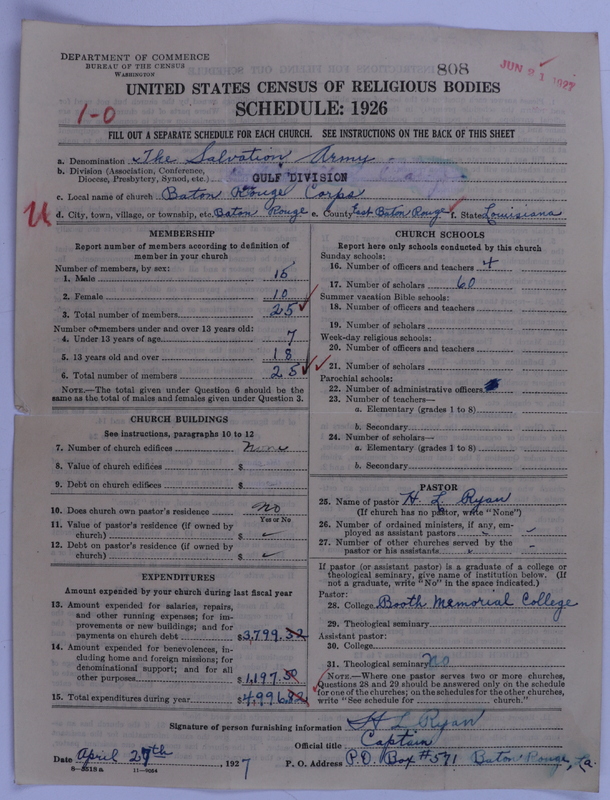 DEPARTMENT OF COMMERCE
BUREAU OF THE CENSUS
WASHINGTON
808
JUN 21 1927
UNITED STATES CENSUS OF RELIGIOUS BODIES
SCHEDULE: 1926
1-0
FILL OUT A SEPARATE SCHEDULE FOR EACH CHURCH. SEE INSTRUCTIONS ON THE BACK OF THIS SHEET
a. Denomination The Salvation Army
b. Division (Association, Conference, Diocese, Presbytery, Synod, etc.) GULF DIVISION
c. Local name of church Baton Rouge Corps
U d. City, town, village, or township, etc. Baton Rouge e. County East Baton Rouge f. State Louisiana
MEMBERSHIP
Report number of members according to definition of
member in your church
Number of members, by sex:
1. Male 15
2. Female 10
3. Total number of members 25
Number of members under and over 13 years old:
4. Under 13 years of age 7
5. 13 years old and over 18
6. Total number of members 25
NOTE.—The total given under Question 6 should be the
same as the total of males and females given under Question 3.
CHURCH BUILDINGS
See instructions, paragraphs 10 to 12
7. Number of church edifices None
8. Value of church edifices $
9. Debt on church edifices $
10. Does church own pastor's residence No
Yes or No
11. Value of pastor's residence (if owned by
church) $
12. Debt on pastor's residence (if owned by
church) $
EXPENDITURES
Amount expended by your church during last fiscal year
13. Amount expended for salaries, repairs,
and other running expenses; for im-
provements or new buildings; and for
payments on church debt $3,799.32
14. Amount expended for benevolences, in-
cluding home and foreign missions; for
denominational support; and for all
other purposes $1,197.50
15. Total expenditures during year $4,996.82
CHURCH SCHOOLS
Report here only schools conducted by this church
Sunday schools:
16. Number of officers and teachers 4
17. Number of scholars 60
Summer vacation Bible schools:
18. Number of officers and teachers
19. Number of scholars
Week-day religious schools:
20. Number of officers and teachers
21. Number of scholars
Parochial schools:
22. Number of administrative officers
23. Number of teachers—
a. Elementary (grades 1 to 8)
b. Secondary
24. Number of scholars—
a. Elementary (grades 1 to 8)
b. Secondary
PASTOR
25. Name of pastor H L Ryan
(If church has no pastor, write "None")
26. Number of ordained ministers, if any, em-
ployed as assistant pastors
27. Number of other churches served by the
pastor or his assistants
If pastor (or assistant pastor) is a graduate of a college or
theological seminary, give name of institution below. (If
not a graduate, write "No" in the space indicated.)
Pastor:
28. College Booth Memorial College
29. Theological seminary
Assistant pastor:
30. College
31. Theological seminary No
NOTE.—Where one pastor serves two or more churches,
Questions 28 and 29 should be answered only on the schedule
for one of the churches; on the schedules for the other churches,
write "See schedule for church."
Signature of person furnishing information H L Ryan
Official title Captain
Date April 27th, 1927 P. O. Address P.O. Box #571 Baton Rouge, La.
8—5518a 11—9064